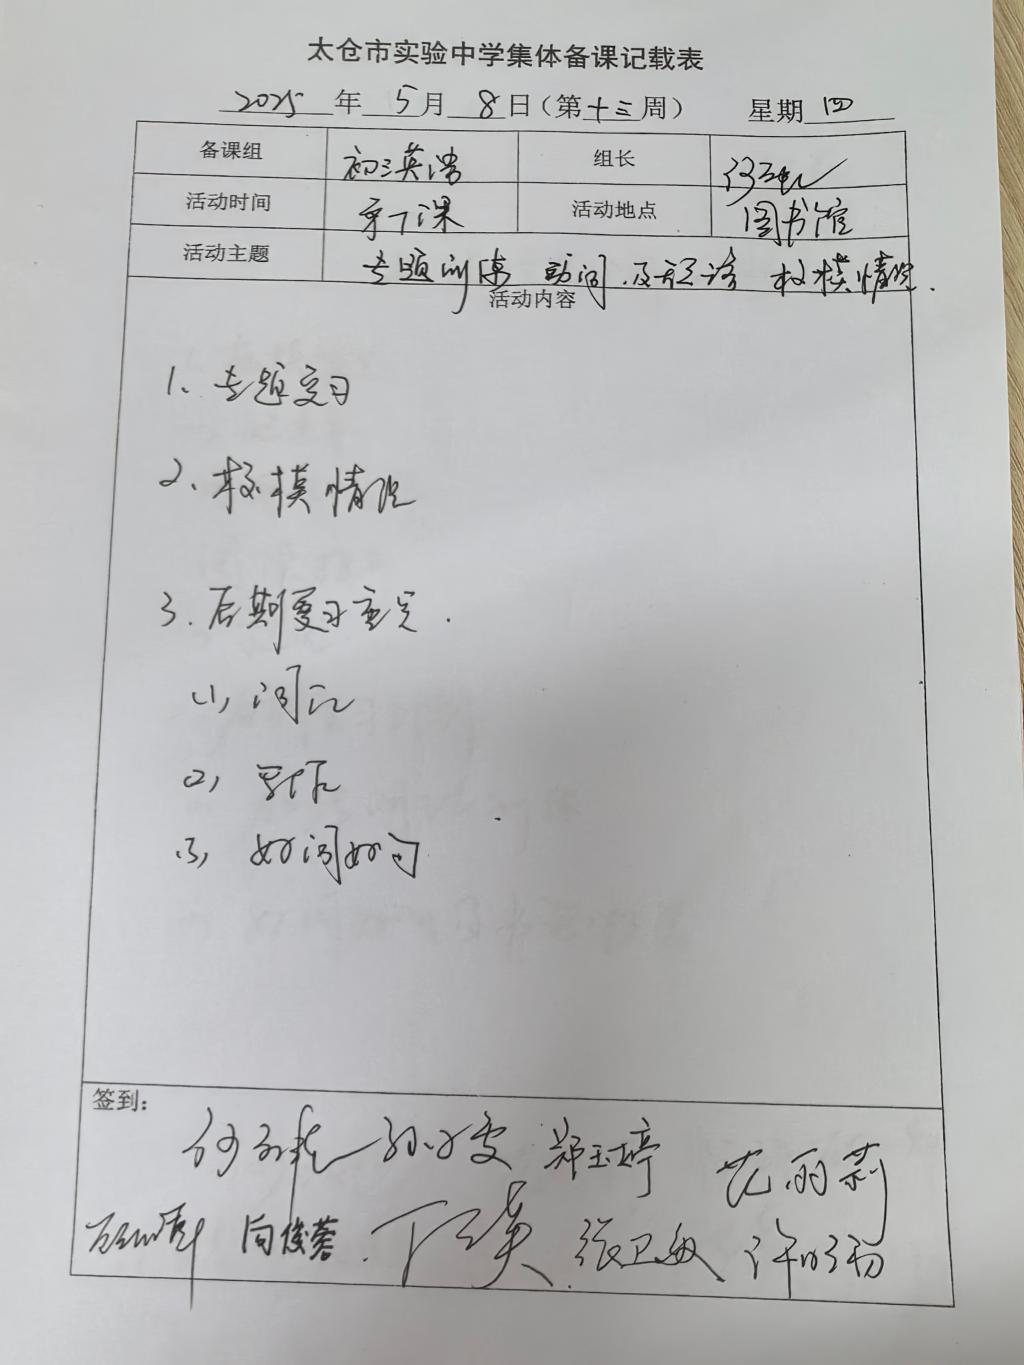 太仓市实验中学集体备课记载表
2025 年 5 月 8 日（第十三周） 星期 四
备课组 初三英语 组长
活动时间 第1课 活动地点 图书馆
活动主题 专题训练 动词 及 校模情况.
活动内容
1、专题复习
2、校模情况
3.后期复习重点.
(1) 词汇
(2)
(3) 好词好句
签到:
郑玉婷 范丽莉
向俊蓉 丁红英 张卫敏